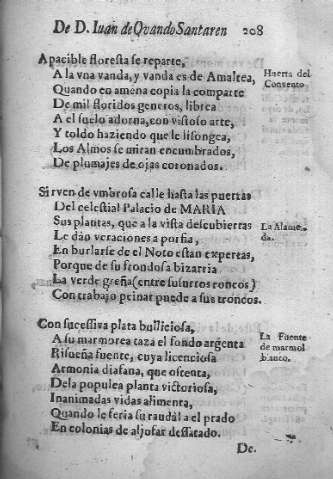 De D. Iuan de Ovando Santaren 208
Apacible floresta se reparte,
A la vna vanda, y vanda es de Amaltea,
Huerta del
Convento
Quando en amena copia la comparte
De mil floridos generos, librea
A el suelo adorna, con vistoso arte,
Y toldo haziendo que le lisongea,
Los Almos se miran encumbrados,
De plumajes de ojas coronados.
Sirven de vmbrosa calle hasta las puertas
Del celestial Palacio de MARIA
Sus plantas, que a la vista descubiertas
La Alame-
da.
Le dàn veraciones a porfia,
En burlarse de el Noto estan expertas,
Porque de su frondosa bizarria
La verde greña (entre susurros roncos)
Con trabajo peinar puede a sus troncos.
Con sucessiva plata bulliciosa,
A su marmorea taza el fondo argenta
La Fuente
de marmol
blanco.
Risueña fuente, cuya licenciosa
Armonia diafana, que ostenta,
Dela populea planta victoriosa,
Inanimadas vidas alimenta,
Quando le feria su raudal a el prado
En colonias de aljofar desatado.
De.